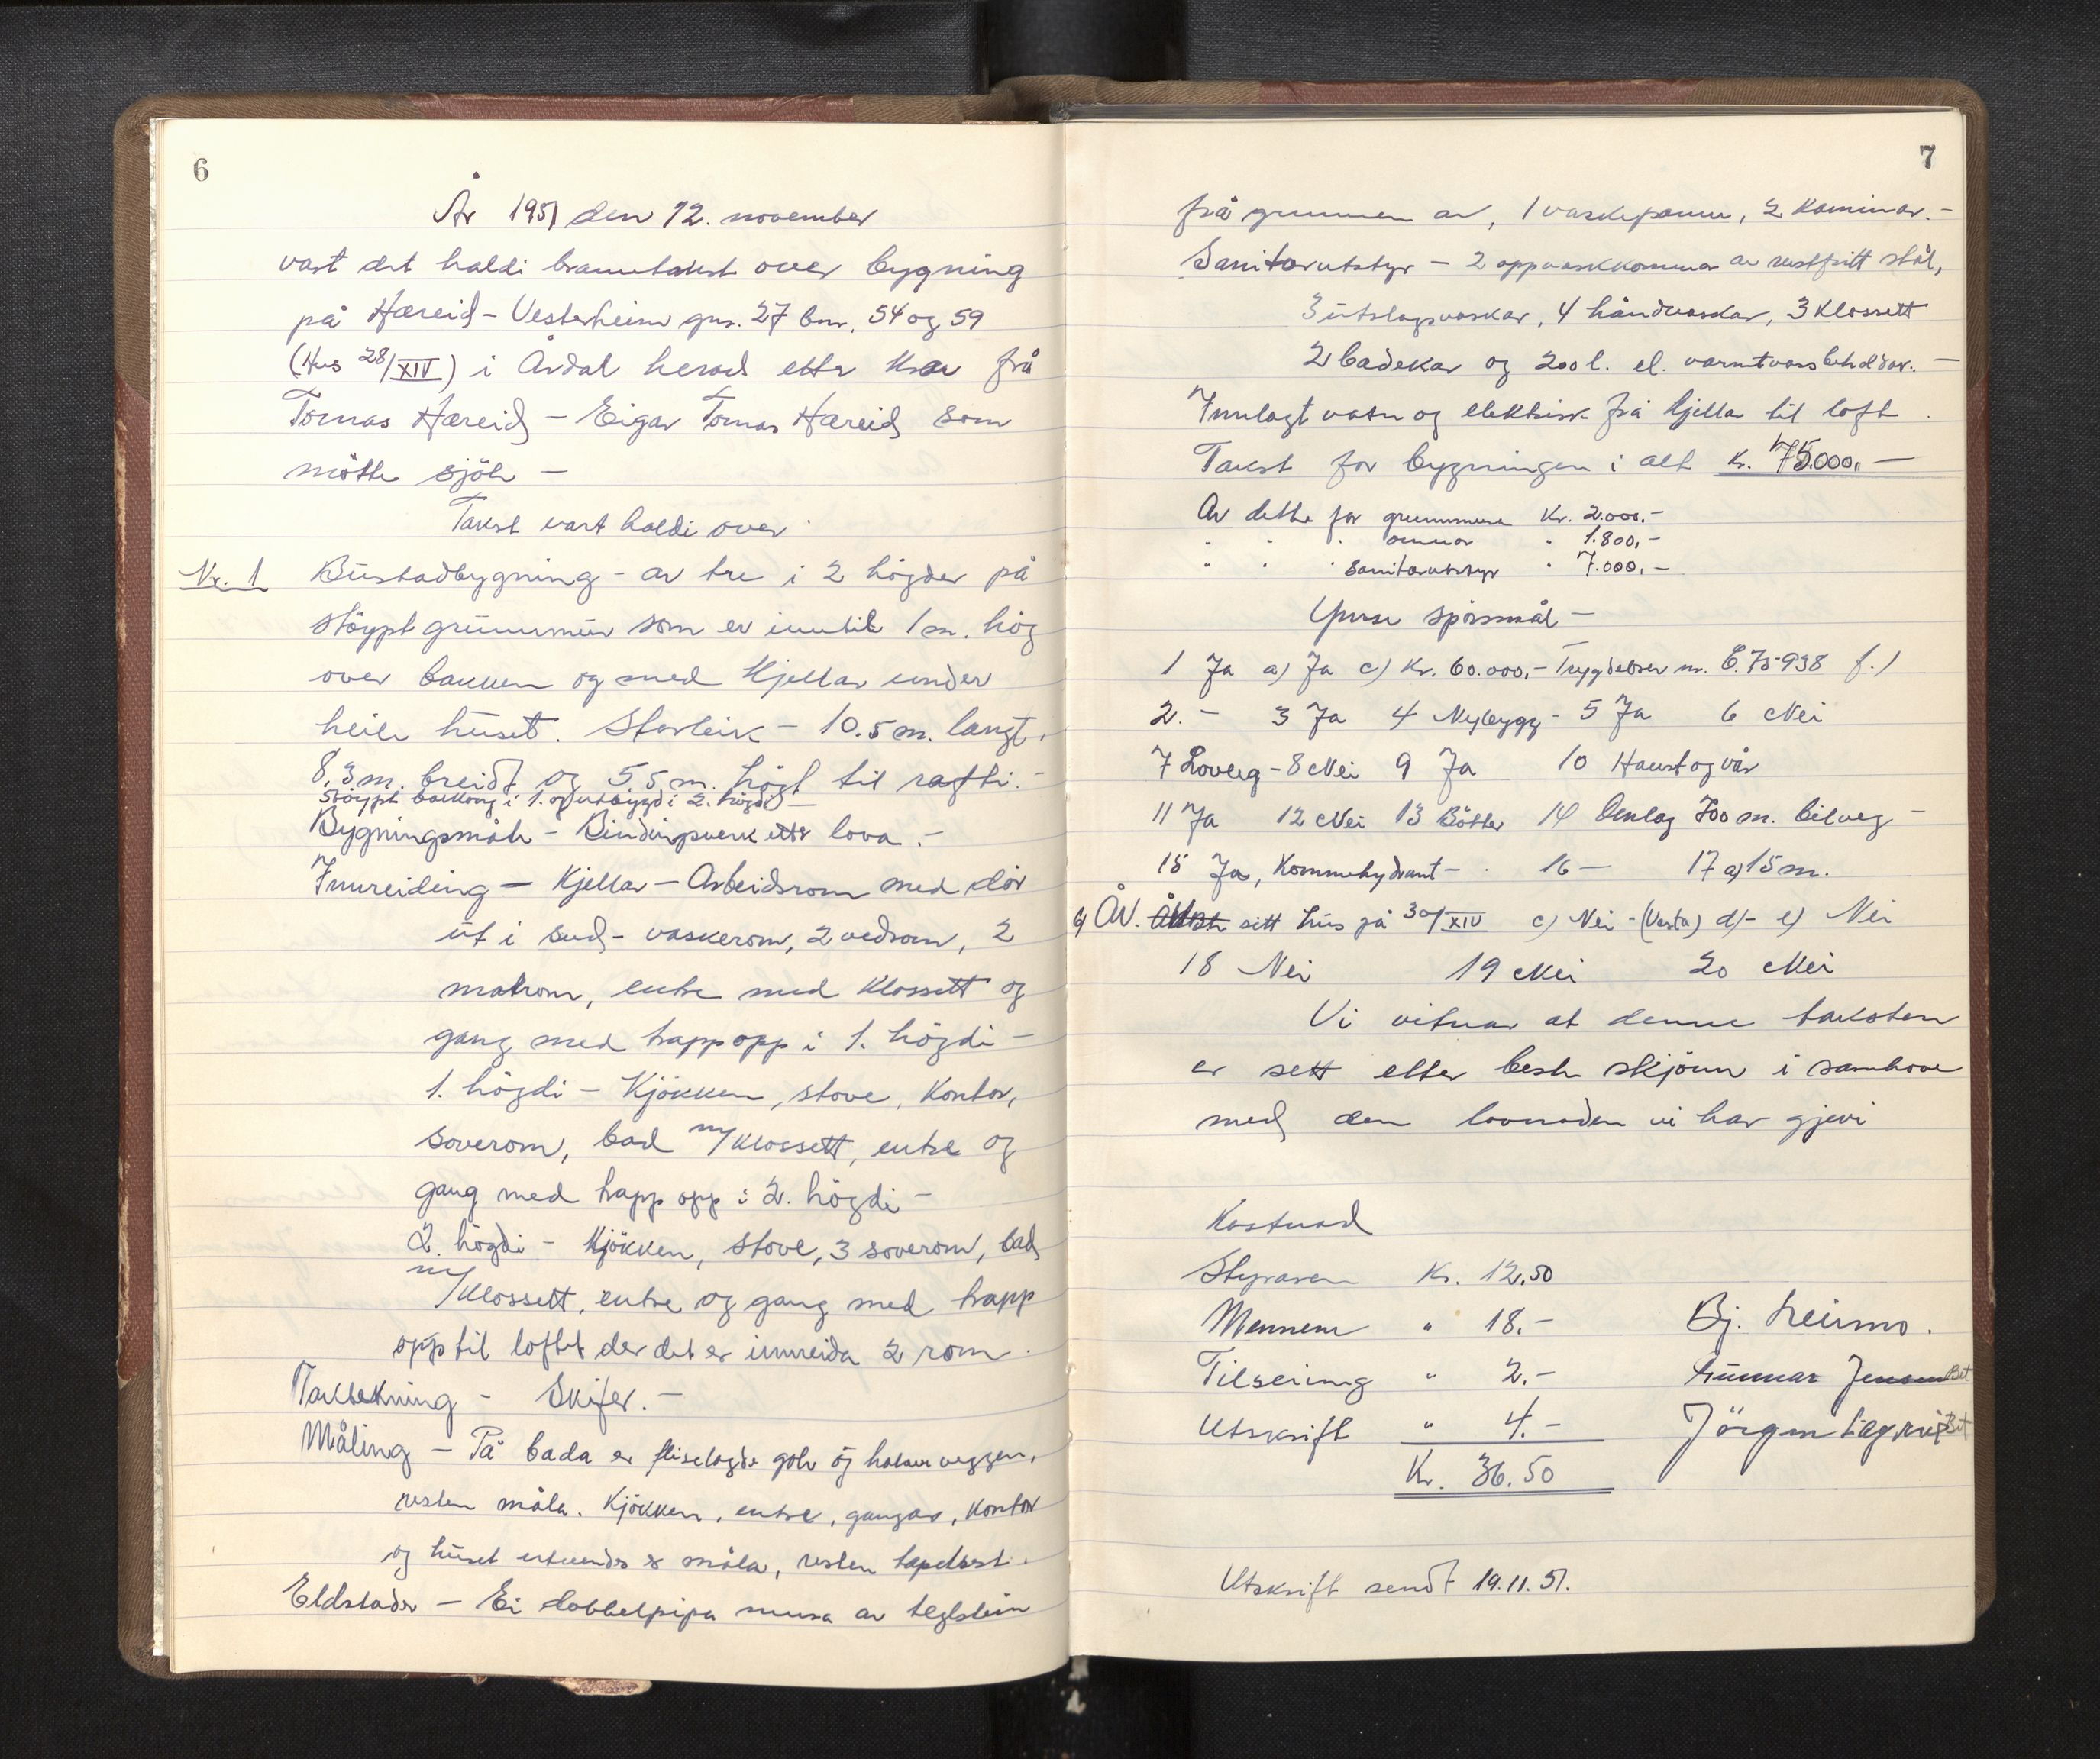 6
År 1951 den 12. november
vart det haldi branntakst over bygning
på Hæreid - Vesterheim gnr. 27 bnr. 54 og 59
(Hus 28/XIV) i Årdal herad etter krav frå
Tomas Hæreid - Eigar Tomas Hæreid som
møtte sjöl -
Takst vart haldi over
Nr. 1 Bustadbygning - av tre i 2 högder på
stöypt grunnmur som er inntil 1 m. hög
over bakken og med kjellar under
heile huset. Storleik - 10.5 m. langt,
8,3 m. breidt og 5,5 m. högt til rafti. -
Stöypt balkong i 1. og utbygd i 2. högdi -
Bygningsmåte - Bindingsverk etter lova. -
Innreiding - Kjellar - Arbeidsrom med dör
ut i sud - vaskerom, 2 vedrom, 2
matrom, entre med klossett og
gang med trapp opp i 1. högdi -
1. högdi - Kjökken, stove, kontor,
soverom, bad m/klossett, entre og
gang med trapp opp i 2. högdi -
2. högdi - Kjökken, stove, 3 soverom, bad
m/klossett, entre og gang med trapp
opp til loftet der det er innreida 2 rom.
Taktekning - Skifer. -
Måling - På bada er fliselagde golv og halve veggen,
resten måla. Kjökken, entre, gangar, kontor
og huset utvendes er måla, resten tapetsert.
Eldstader - Ei dobbelpipa mura av teglstein
7
frå grunnen av, 1 vaskepanne, 2 kaminar. -
Sanitærutstyr - 2 oppvaskkommar av rustfritt stål,
3 utslagsvaskar, 4 håndvaskar, 3 klossett
2 badekar og 200 l. el. varmtvassbehaldar. -
Innlagt vatn og elektrisk frå kjellar til loft.
Takst for bygningen i alt kr. 75.000,-
Av dette for grunnmur Kr. 2.000.-
" " " omnar " 1.800,-
" " " Sanitærutstyr " 7.000,-
Ymse spörsmål -
1 Ja a) Ja c) Kr. 60.000,- Trygdelser nr. C.75938 f.)
2. - 3 Ja 4 Nybygg - 5 Ja 6 Nei
7 Loveg - 8 Nei 9 Ja 10 Haust og vår
11 Ja 12 Nei 13 Bötter 14 Omlag 700 m. bilveg -
15 Ja, Kommehydrant - 16 - 17 a) 15 m.
b) ÅV. sitt hus på 30/XIV c) Nei - (Vesta) d) - e) Nei
18 Nei 19 Nei 20 Nei
Vi vitnar at denne taksten
er sett etter beste skjönn i samhove
med den lovnaden vi har gjevi
Kostnad
Styraren Kr. 12,50
Mennene " 18.-
Tilseiing " 2.-
Utskrift " 4.-
Kr. 36.50
Bj. Heimo.
Gunnar Jensen Bet
Jörgen Bet
Utskrift sendt 19.11.51.